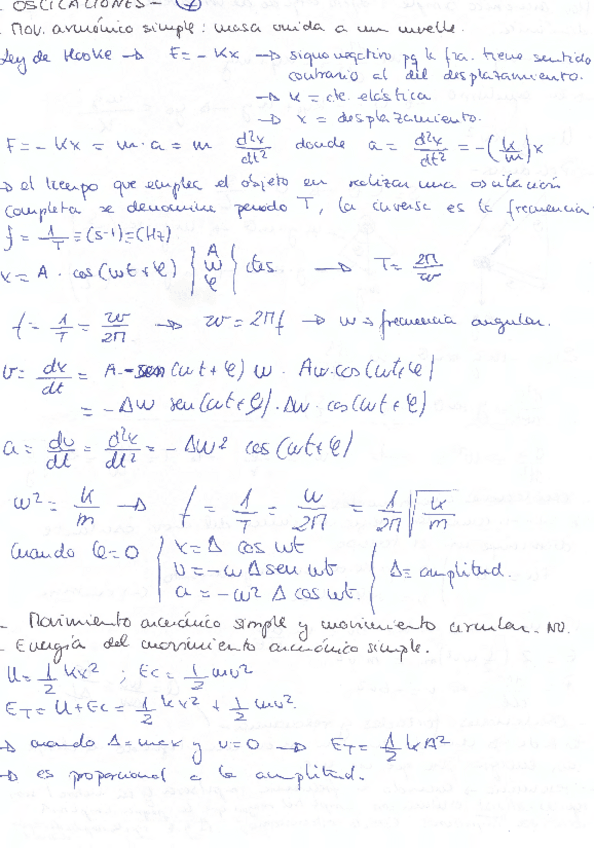 OSCILACIONES -
- Mov. armónico simple: masa unida a un muelle.
Ley de Hooke → F = -Kx → signo negativo pq la fza. tiene sentido
contrario al del desplazamiento.
→ K = cte. elástica
→ x = desplazamiento.
F = - Kx = m·a = m d²x/dt² donde a = d²x/dt² = -(k/m)x
→ el tiempo que emplea el objeto en realizar una oscilación
completa se denomina periodo T, la inversa es la frecuencia
f = 1/T = (s-1) = (Hz)
x = A · cos(wt + φ) } A w φ { ctes. → T = 2π/w
f = 1/T = w/2π → w = 2πf → w = frecuencia angular.
v = dx/dt = A · -sen(wt + φ) w · Aw·cos(wt + φ)
= - Aw sen(wt + φ) · Aw · cos(wt + φ)
a = dv/dt = d²x/dt² = - Aw² cos(wt + φ)
w² = K/m → f = 1/T = w/2π = 1/2π √K/m
Cuando φ = 0 { x = A cos wt
v = -wA sen wt
a = -w² A cos wt. { A = amplitud.
- Movimiento armónico simple y movimiento circular. NO.
- Energía del movimiento armónico simple.
U = 1/2 Kx² ; Ec = 1/2 mv²
ET = U + Ec = 1/2 Kx² + 1/2 mv².
→ cuando A = max y v = 0 → ET = 1/2 kA²
→ es proporcional a la amplitud.